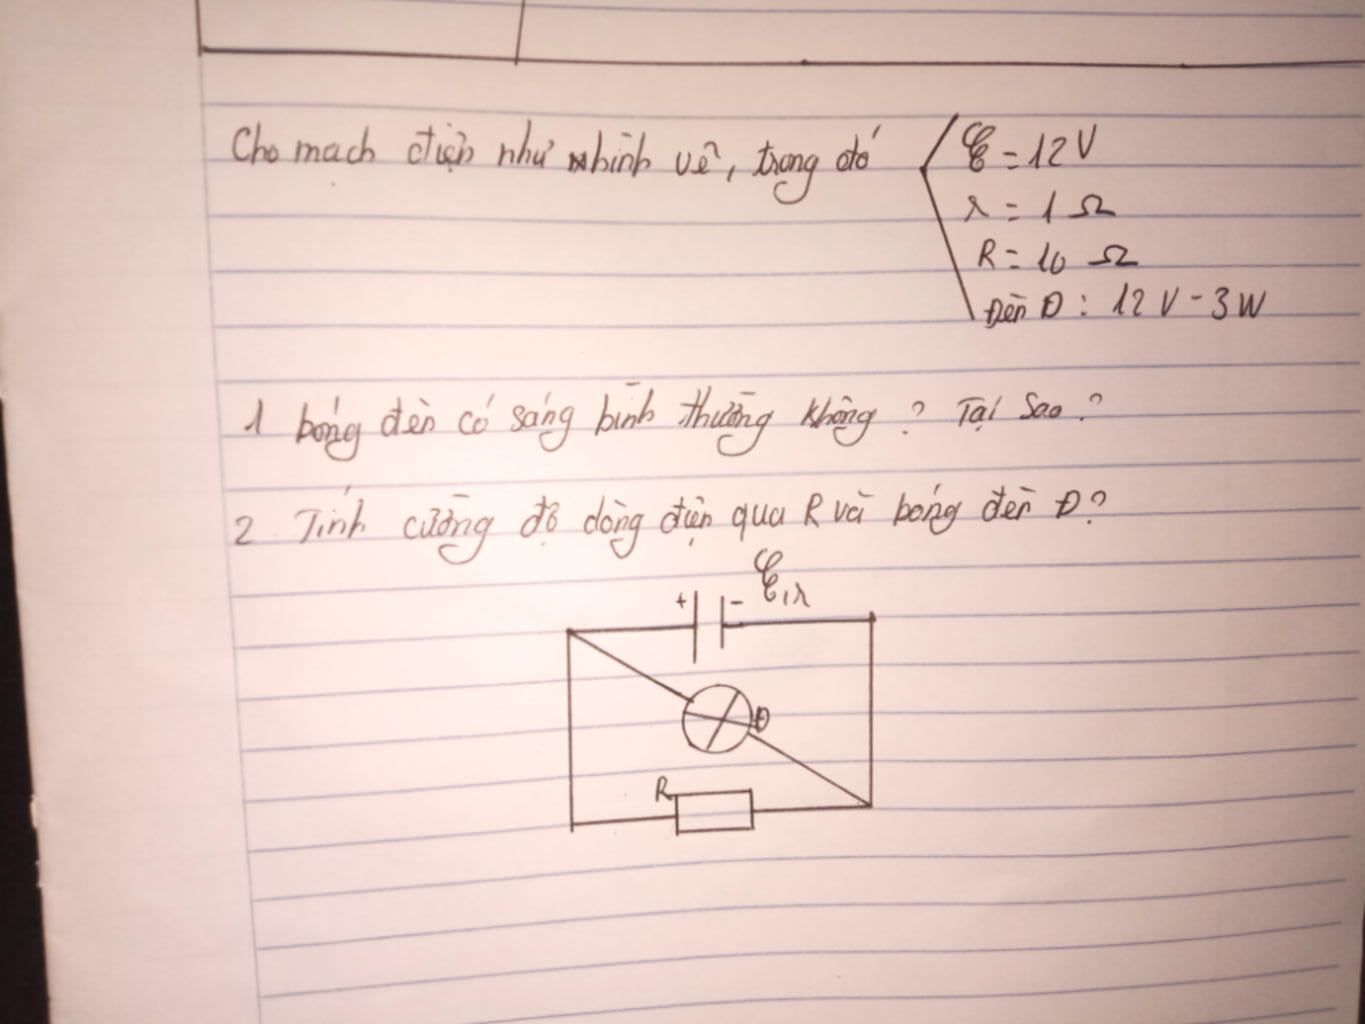 Cho mạch điện như hình vẽ, trong đó
ℰ = 12 V
r = 1 Ω
R = 10 Ω
Đèn Đ : 12 V - 3 W
1 bóng đèn có sáng bình thường không ? Tại sao ?
2 Tính cường độ dòng điện qua R và bóng đèn Đ?
ℰ, r
+ -
Đ
R